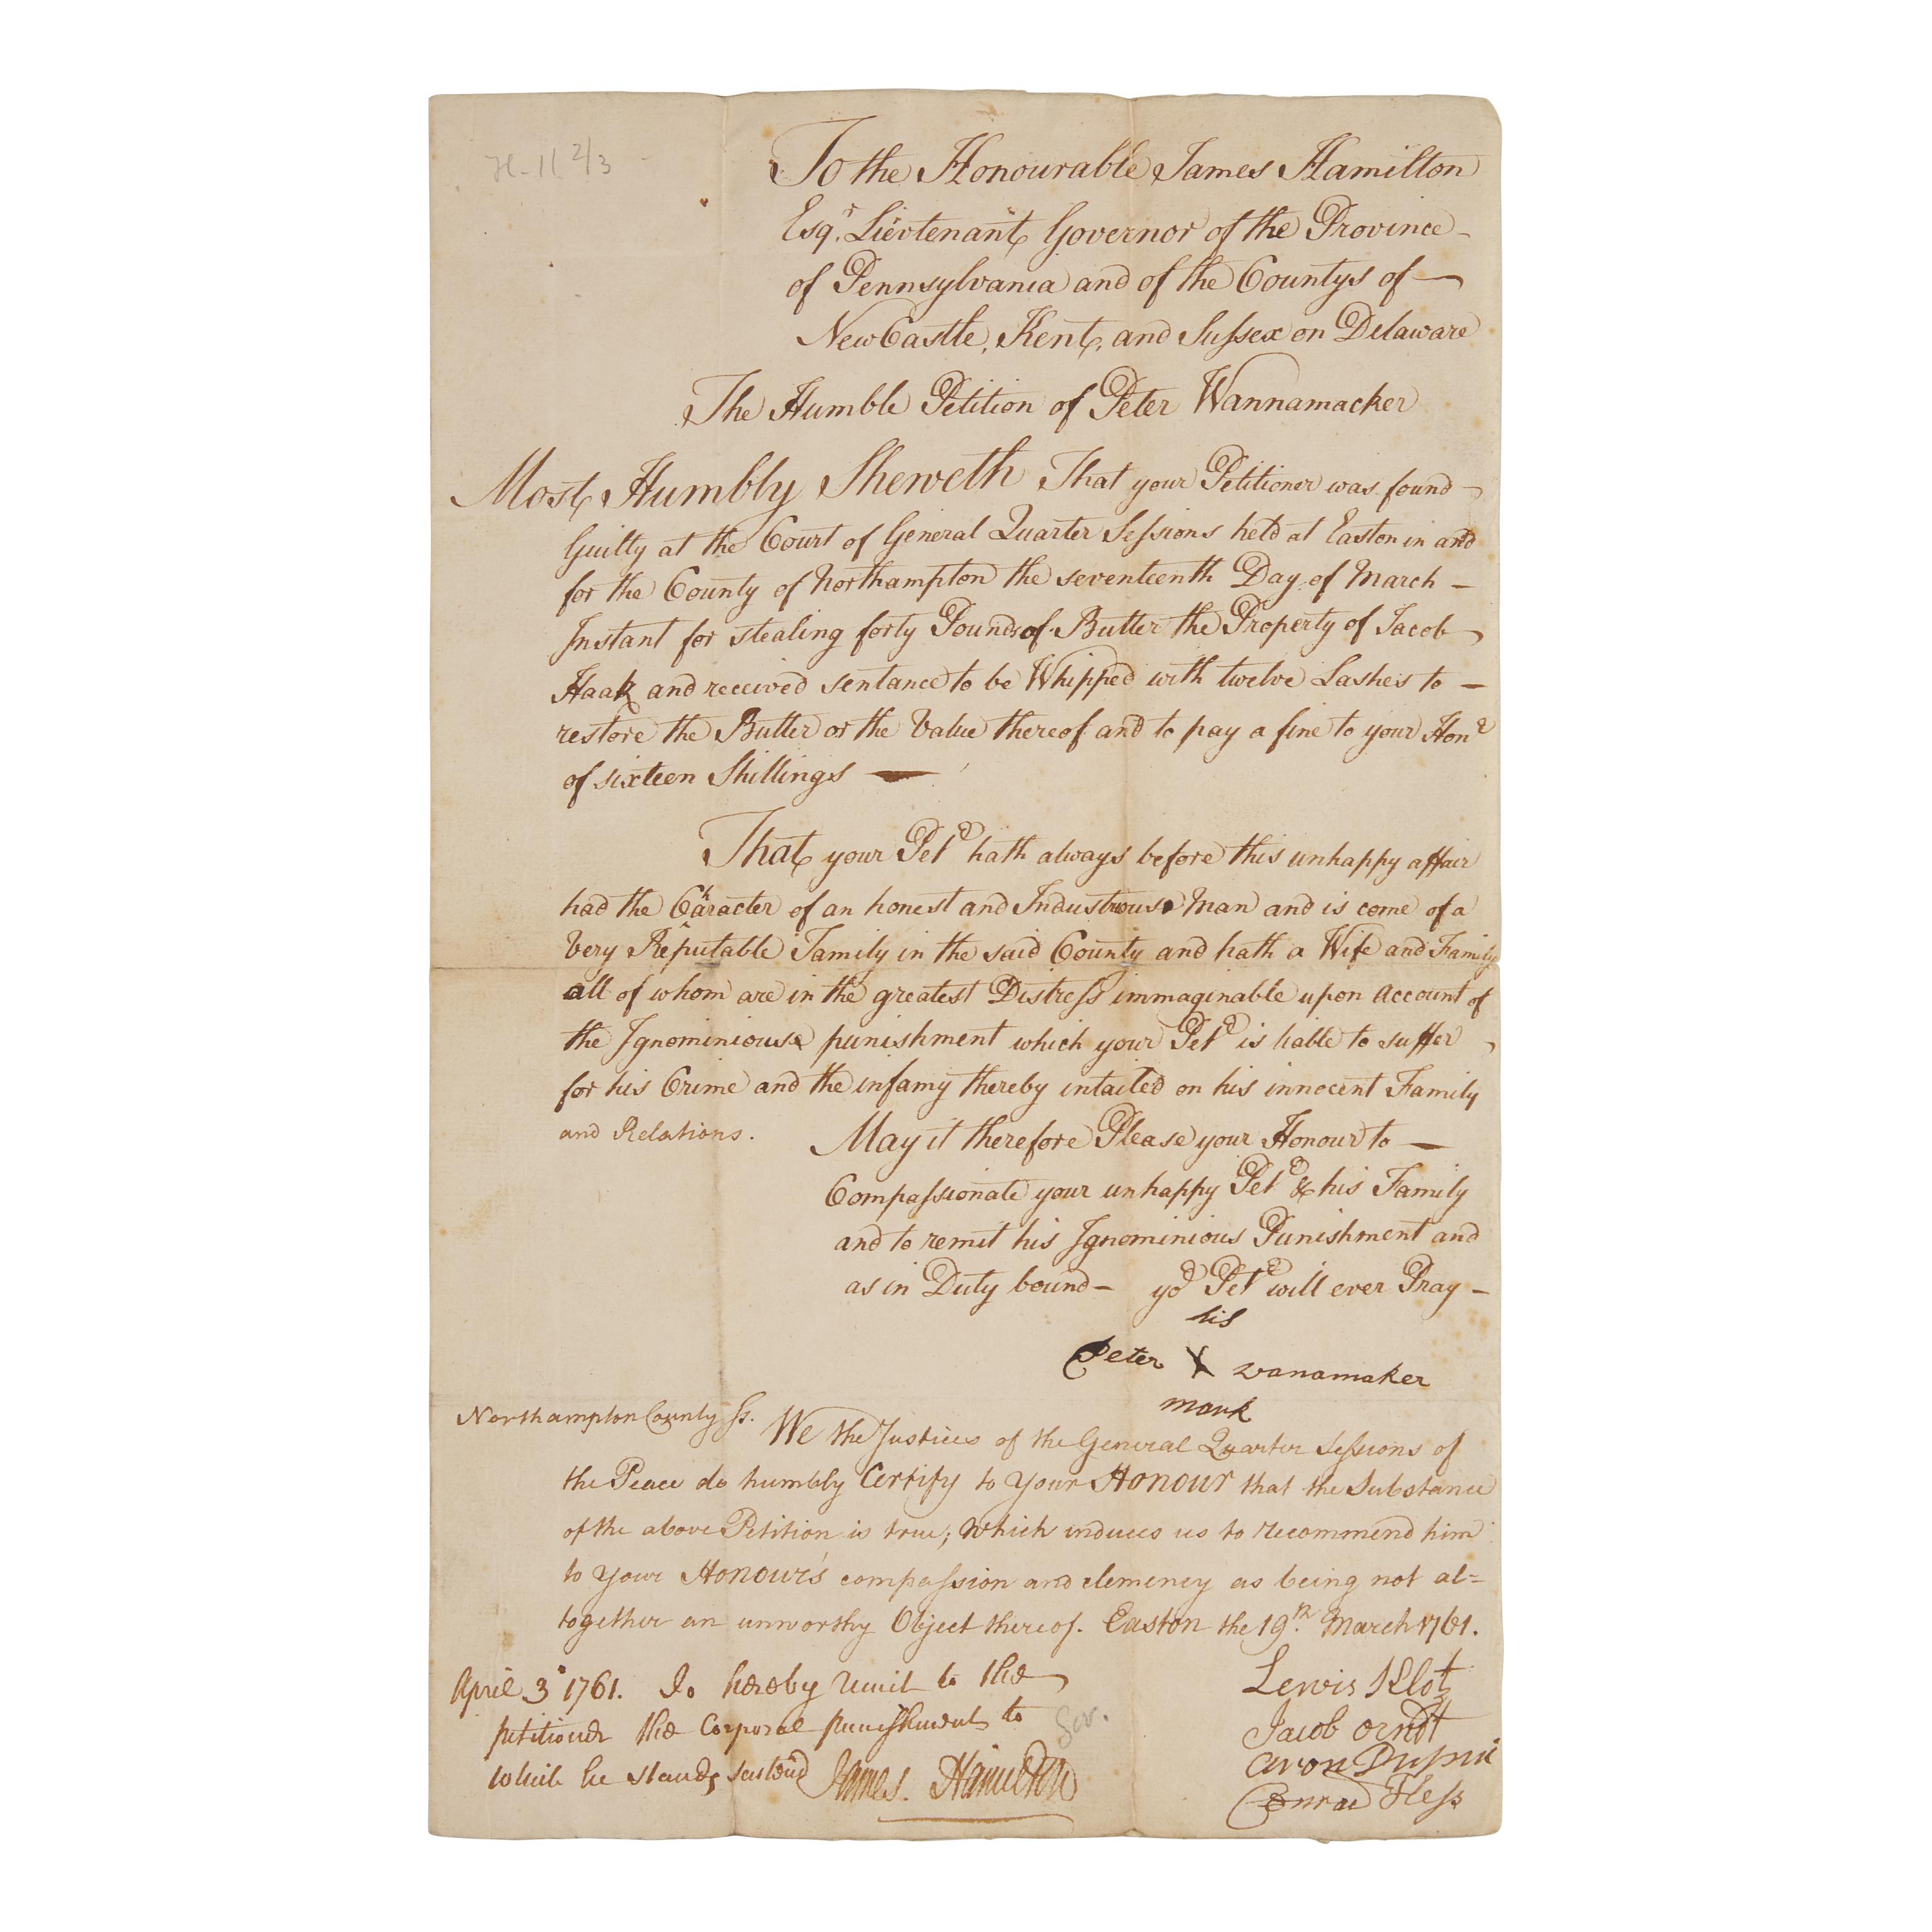 H-11 2/3
To the Honourable James Hamilton
Esqr. Lievtenant Governor of the Province
of Pennsylvania and of the Countys of
NewCastle, Kent, and Sussex on Delaware
The Humble Petition of Peter Wannamacker
Most Humbly Sheweth That your Petitioner was found
Guilty at the Court of General Quarter Sessions held at Easton in and
for the County of Northampton the seventeenth Day of March
Instant for stealing forty Pounds of Butter the Property of Jacob
Haak and received sentance to be Whipped with twelve Lashes to
restore the Butter or the Value thereof and to pay a fine to your Honr
of sixteen Shillings
That your Petr hath always before this unhappy affair
had the Character of an honest and Industrious Man and is come of a
Very Reputable Family in the said County and hath a Wife and Family
all of whom are in the greatest Distress immaginable upon Account of
the Ignominiouse punishment which your Petr is liable to suffer
for his Crime and the infamy thereby intailed on his innocent Family
and Relations. May it therefore Please your Honour to
Compassionate your unhappy Petr & his Family
and to remit his Ignominious Punishment and
as in Duty bound - yor Petr will ever Pray -
his
Peter X wanamaker
mark
Northampton County Ss. We the Justices of the General Quarter Sessions of
the Peace do humbly Certify to your Honour that the Substance
of the above Petition is true; which induces us to recommend him
to your Honour's compassion and clemency as being not al=
together an unworthy Object thereof. Easton the 19th. March 1761.
April 3d 1761. I do hereby remit to the
petitioner the Corporal punishment to
which he stands sentenc'd James Hamilton
Gov.
Lewis Klotz
Jacob Arndt
Aron Dupui
Conrad Hess